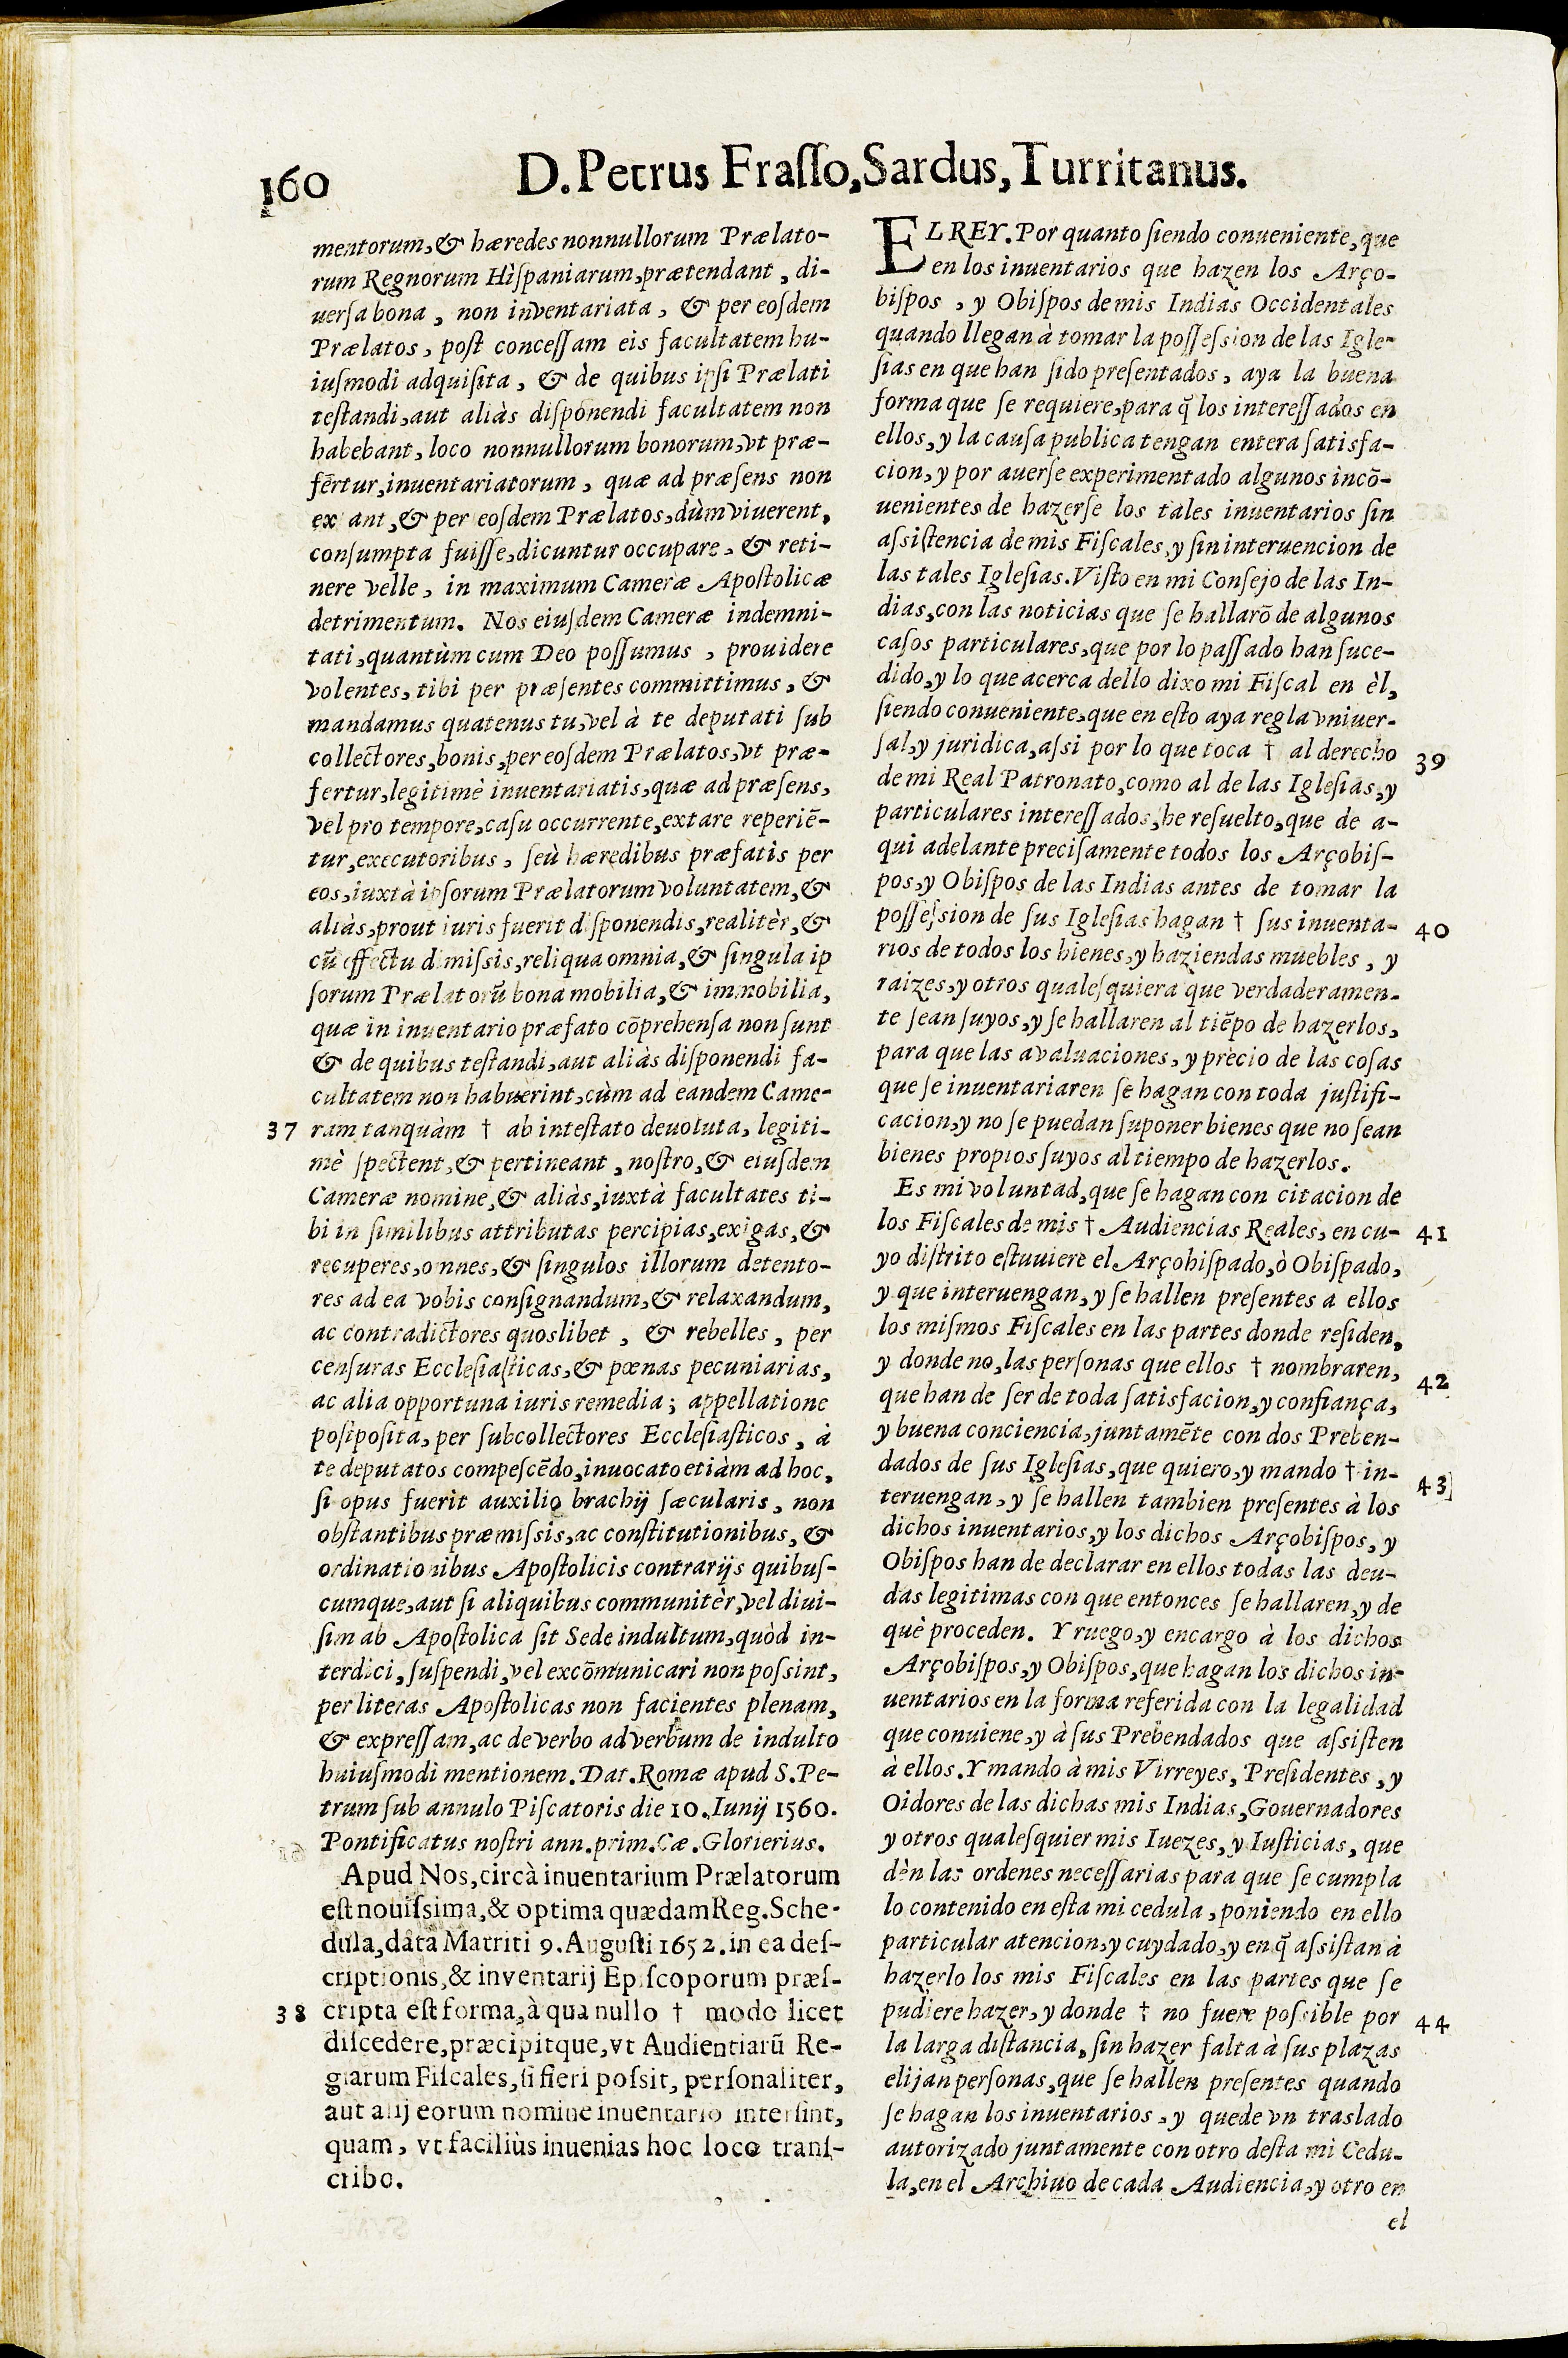 160
D. Petrus Frasso, Sardus, Turritanus.
mentorum, & hæredes nonnullorum Prælato-
rum Regnorum Hispaniarum, prætendant, di-
uersa bona, non inventariata, & per eosdem
Prælatos, post concessam eis facultatem hu-
iusmodi adquisita, & de quibus ipsi Prælati
testandi, aut aliàs disponendi facultatem non
habebant, loco nonnullorum bonorum, vt præ-
fertur, inuentariatorum, quæ ad præsens non
ex ant, & per eosdem Prælatos, dùm viuerent,
consumpta fuisse, dicuntur occupare, & reti-
nere velle, in maximum Cameræ Apostolicæ
detrimentum. Nos eiusdem Cameræ indemni-
tati, quantùm cum Deo possumus, prouidere
volentes, tibi per præsentes committimus, &
mandamus quatenus tu, vel à te deputati sub
collectores, bonis, per eosdem Prælatos, vt præ-
fertur, legitimè inuentariatis, quæ ad præsens,
vel pro tempore, casu occurrente, extare reperiē-
tur, executoribus, seù hæredibus præfatis per
eos, iuxtà ipsorum Prælatorum voluntatem, &
aliàs, prout iuris fuerit disponendis, realitèr, &
cū effectu dimissis, reliqua omnia, & singula ip
sorum Prælatorū bona mobilia, & immobilia,
quæ in inuentario præfato cōprehensa non sunt
& de quibus testandi, aut aliàs disponendi fa-
cultatem non habuerint, cùm ad eandem Came-
37 ram tanquàm † ab intestato deuoluta, legiti-
mè spectent, & pertineant, nostro, & eiusdem
Cameræ nomine, & aliàs, iuxtà facultates ti-
bi in similibus attributas percipias, exigas, &
recuperes, omnes, & singulos illorum detento-
res ad ea vobis consignandum, & relaxandum,
ac contradictores quoslibet, & rebelles, per
censuras Ecclesiasticas, & pœnas pecuniarias,
ac alia opportuna iuris remedia; appellatione
postposita, per subcollectores Ecclesiasticos, à
te deputatos compescēdo, inuocato etiàm ad hoc,
si opus fuerit auxilio brachij sæcularis, non
obstantibus præmissis, ac constitutionibus, &
ordinationibus Apostolicis contrarijs quibus-
cumque, aut si aliquibus communitèr, vel diui-
sim ab Apostolica sit Sede indultum, quòd in-
terdici, suspendi, vel excōmunicari non possint,
per literas Apostolicas non facientes plenam,
& expressam, ac de verbo ad verbum de indulto
huiusmodi mentionem. Dat. Romæ apud S. Pe-
trum sub annulo Piscatoris die 10. Iunij 1560.
Pontificatus nostri ann. prim. Cæ. Glorierius.
Apud Nos, circà inuentarium Prælatorum
est nouissima, & optima quædam Reg. Sche-
dula, data Matriti 9. Augusti 1652. in ea des-
criptionis, & inventarij Episcoporum præs-
38 cripta est forma, à qua nullo † modo licet
discedere, præcipitque, vt Audientiarū Re-
giarum Fiscales, si fieri possit, personaliter,
aut alij eorum nomine inuentario intersint,
quam, vt faciliùs inuenias hoc loco trans-
cribo.
EL REY. Por quanto siendo conueniente, que
en los inuentarios que hazen los Arço-
bispos, y Obispos de mis Indias Occidentales
quando llegan à tomar la possession de las Igle-
sias en que han sido presentados, aya la buena
forma que se requiere, para q̄ los interessados en
ellos, y la causa publica tengan entera satisfa-
cion, y por auerse experimentado algunos incō-
uenientes de hazerse los tales inuentarios sin
assistencia de mis Fiscales, y sin interuencion de
las tales Iglesias. Visto en mi Consejo de las In-
dias, con las noticias que se hallarō de algunos
casos particulares, que por lo passado han suce-
dido, y lo que acerca dello dixo mi Fiscal en èl,
siendo conueniente, que en esto aya regla vniuer-
sal, y juridica, assi por lo que toca † al derecho 39
de mi Real Patronato, como al de las Iglesias, y
particulares interessados, he resuelto, que de a-
qui adelante precisamente todos los Arçobis-
pos, y Obispos de las Indias antes de tomar la
possession de sus Iglesias hagan † sus inuenta- 40
rios de todos los bienes, y haziendas muebles, y
raizes, y otros qualesquiera que verdaderamen-
te sean suyos, y se hallaren al tiēpo de hazerlos,
para que las avaluaciones, y precio de las cosas
que se inuentariaren se hagan con toda justifi-
cacion, y no se puedan suponer bienes que no sean
bienes propios suyos al tiempo de hazerlos.
Es mi voluntad, que se hagan con citacion de
los Fiscales de mis † Audiencias Reales, en cu- 41
yo distrito estuuiere el Arçobispado, ò Obispado,
y que interuengan, y se hallen presentes a ellos
los mismos Fiscales en las partes donde residen,
y donde no, las personas que ellos † nombraren, 42
que han de ser de toda satisfacion, y confiança,
y buena conciencia, juntamēte con dos Preben-
dados de sus Iglesias, que quiero, y mando † in- 43
teruengan, y se hallen tambien presentes à los
dichos inuentarios, y los dichos Arçobispos, y
Obispos han de declarar en ellos todas las deu-
das legitimas con que entonces se hallaren, y de
què proceden. Y ruego, y encargo à los dichos
Arçobispos, y Obispos, que hagan los dichos in-
uentarios en la forma referida con la legalidad
que conuiene, y à sus Prebendados que assisten
à ellos. Y mando à mis Virreyes, Presidentes, y
Oidores de las dichas mis Indias, Gouernadores
y otros qualesquier mis Iuezes, y Iusticias, que
dèn las ordenes necessarias para que se cumpla
lo contenido en esta mi cedula, poniendo en ello
particular atencion, y cuydado, y en q̄ assistan à
hazerlo los mis Fiscales en las partes que se
pudiere hazer, y donde † no fuere possible por 44
la larga distancia, sin hazer falta à sus plazas
elijan personas, que se hallen presentes quando
se hagan los inuentarios, y quede vn traslado
autorizado juntamente con otro desta mi Cedu-
la, en el Archiuo de cada Audiencia, y otro en
el